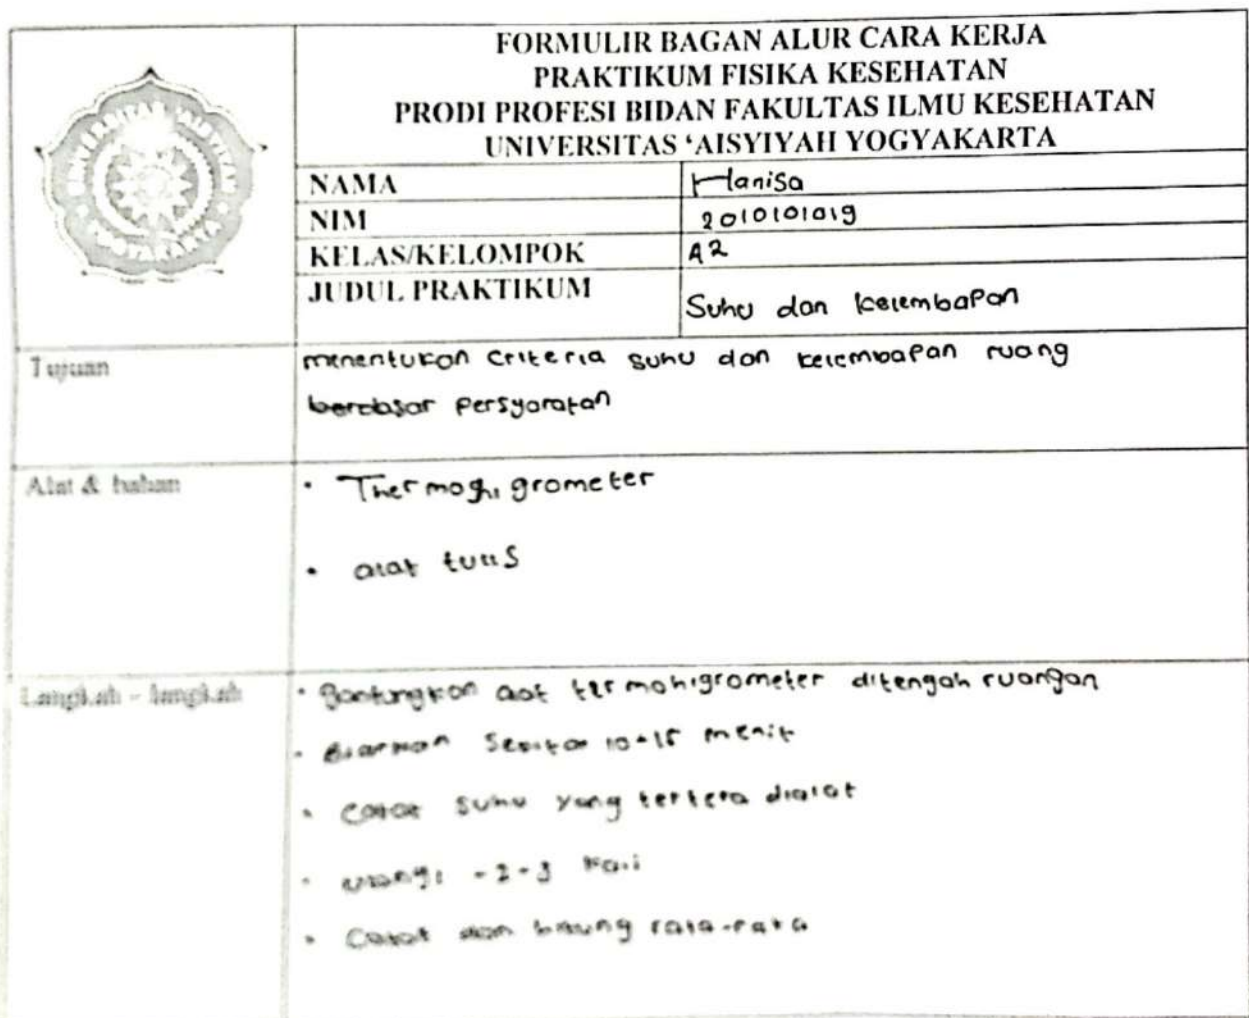 FORMULIR BAGAN ALUR CARA KERJA
PRAKTIKUM FISIKA KESEHATAN
PRODI PROFESI BIDAN FAKULTAS ILMU KESEHATAN
UNIVERSITAS ‘AISYIYAH YOGYAKARTA
NAMA Hanisa
NIM 2010101019
KELAS/KELOMPOK A2
JUDUL PRAKTIKUM Suhu dan kelembapan
Tujuan menentukan criteria suhu dan kelembapan ruang
berdasar persyaratan
Alat & bahan • Thermoghigrometer
• alat tulis
Langkah - langkah • gantungkan alat termohigrometer ditengah ruangan
• Biarkan Sekitar 10-15 menit
• Catat suhu yang tertera dialat
• ulangi -2-3 kali
• Catat dan hitung rata-rata